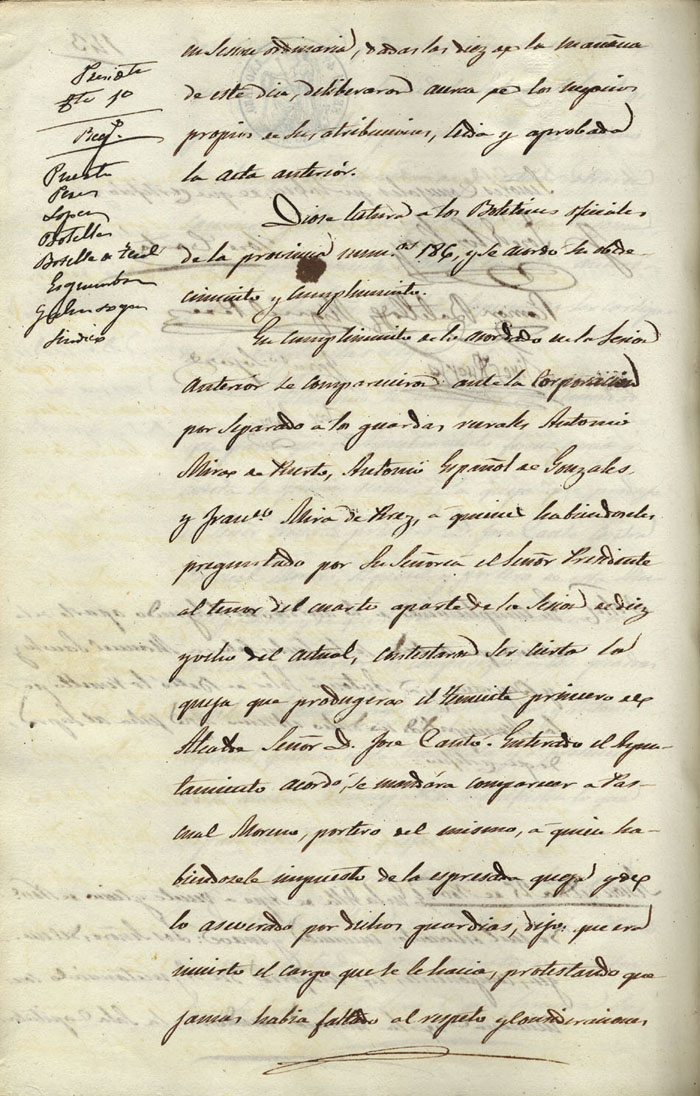 Presidte
Tte 1º
Reg.s
Puerta
Perez
Lopez
Botella
Botella de
Esquembre
Galvis
Sindico
en Sesion ordinaria, dadas las diez de la mañana
de este dia, deliberaron acerca de los negocios
propios de sus atribuciones, leida y aprobada
la acta anterior.
Diose lectura a los Boletines oficiales
de la provincia num.os 186, y se acordo su obede-
cimiento y cumplimiento.
En cumplimiento de lo acordado en la Sesion
anterior se comparecieron ante la Corporacion
por separado a los guardas rurales Antonio
Mira de Puerto, Antonio Español de Gonzales
y Fran.co Mira de Perez, a quienes habiendoseles
preguntado por Su Señoria el Señor Presidente
al tenor del cuarto aparte de la Sesion de diez
y ocho del actual, contestaron ser cierta la
queja que produgera el Teniente primero de
Alcalde Señor D. José Cantó. Enterado el Ayun-
tamiento acordó, se mandára comparecer a Pas-
cual Moreno, portero del mismo, a quien ha-
biendosele impuesto de la espresada queja y de
lo aseverado por dichos guardias, dijo: que era
incierto el cargo que se le hacia, protestando que
jamas habia faltado al respeto y consideraciones